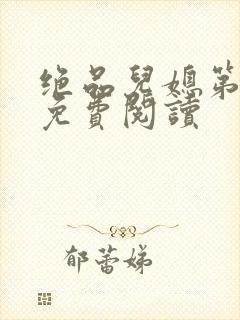 绝品兒媳第
免費閱讀
郁蕾娣